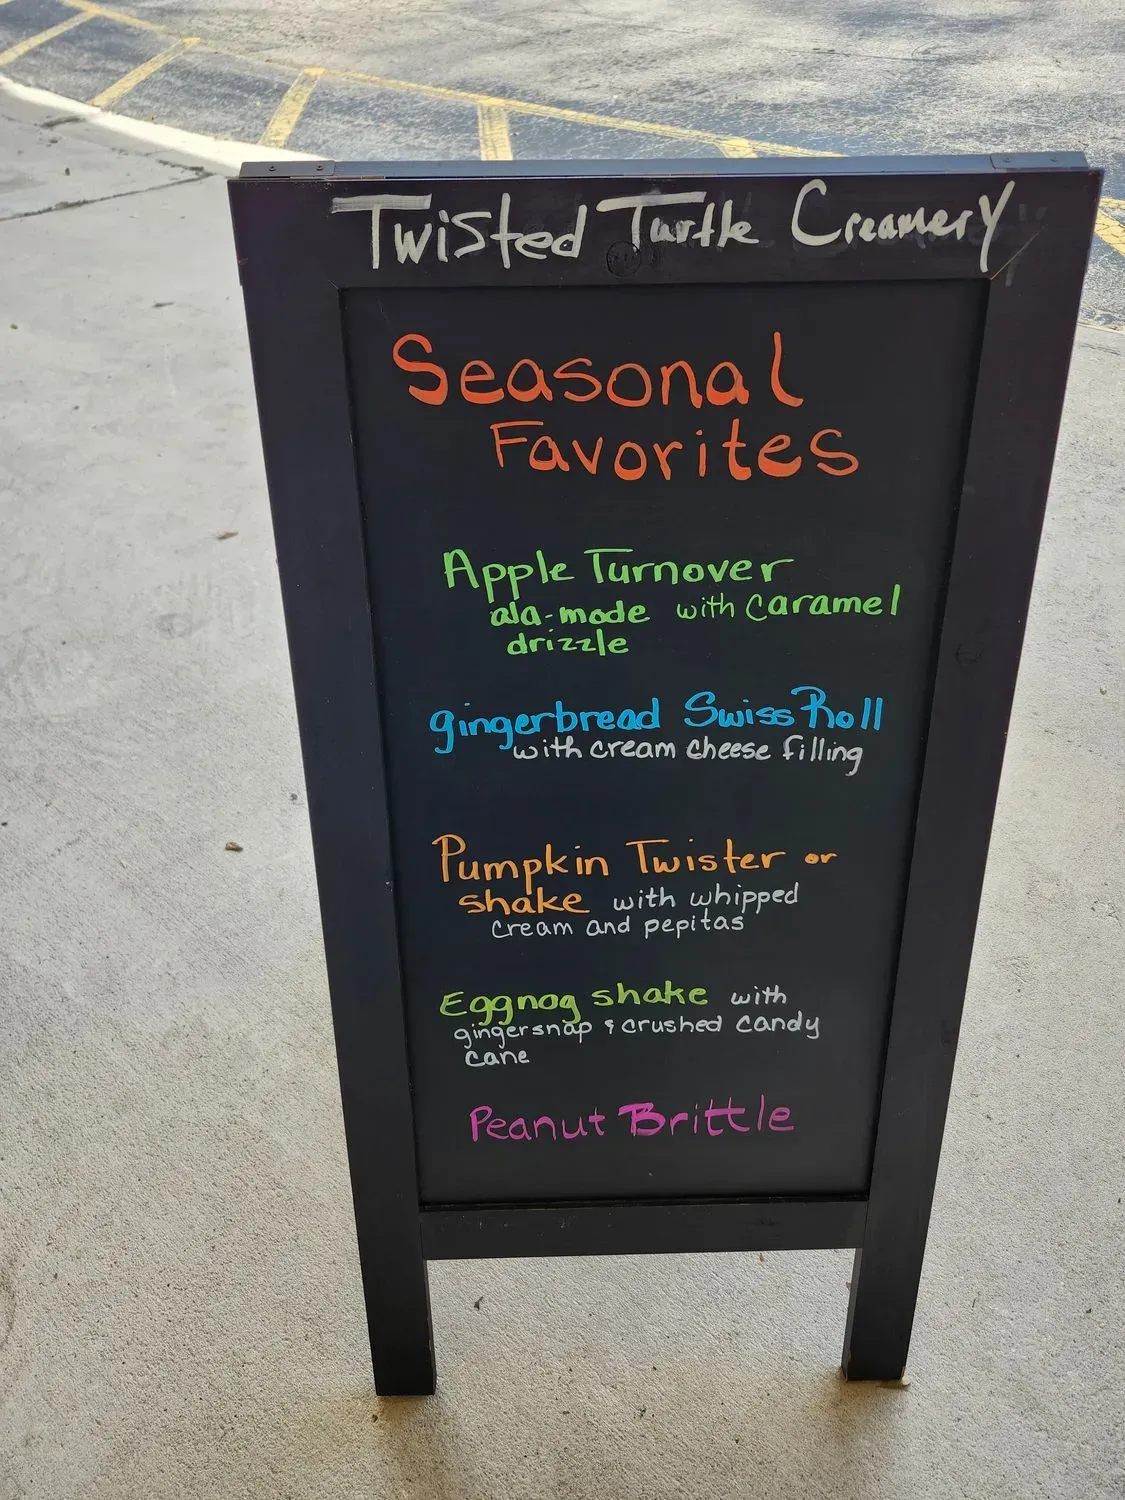 Twisted Turtle Creamery
Seasonal
Favorites
Apple Turnover
ala-mode with caramel
drizzle
gingerbread Swiss Roll
with cream cheese filling
Pumpkin Twister or
shake with whipped
cream and pepitas
Eggnog shake with
gingersnap & crushed candy
cane
Peanut Brittle